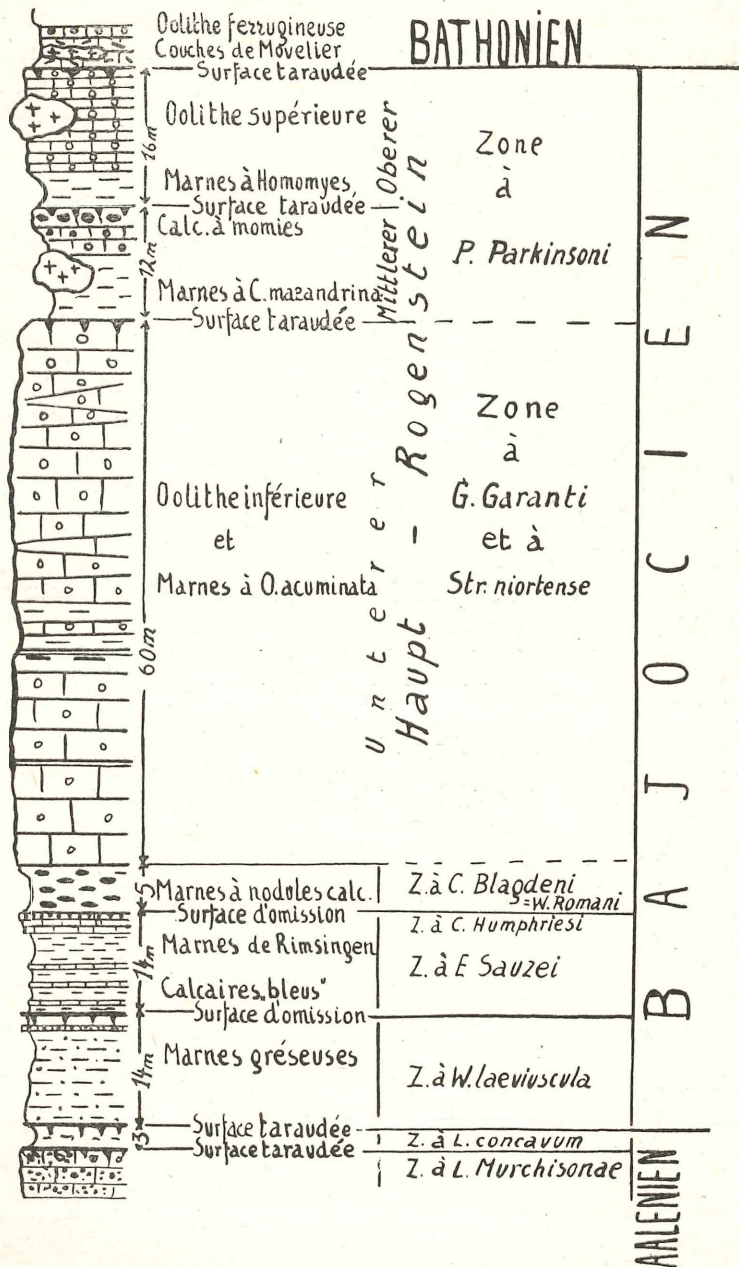 Oolithe ferrugineuse
Couches de Movelier
BATHONIEN
Surface taraudée
Oolithe supérieure
16m
Marnes à Homomyes
Surface taraudée
Calc. à momies
12m
Marnes à C. mazandrina
Surface taraudée
Oolithe inférieure
et
Marnes à O. acuminata
60m
Marnes à nodules calc.
5
Surface d'omission
Marnes de Rimsingen
14m
Calcaires „bleus"
Surface d'omission
Marnes gréseuses
14m
Surface taraudée
3
Surface taraudée
Unterer
Mittlerer
Oberer
Haupt - Rogenstein
Zone
à
P. Parkinsoni
Zone
à
G. Garanti
et à
Str. niortense
Z. à C. Blagdeni
=W. Romani
Z. à C. Humphriesi
Z. à E Sauzei
Z. à W. laeviuscula
Z. à L. concavum
Z. à L. Murchisonae
BAJOCIEN
AALENIEN